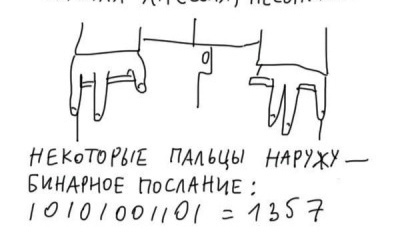 НЕКОТОРЫЕ ПАЛЬЦЫ НАРУЖУ —
БИНАРНОЕ ПОСЛАНИЕ:
10101001101 = 1357